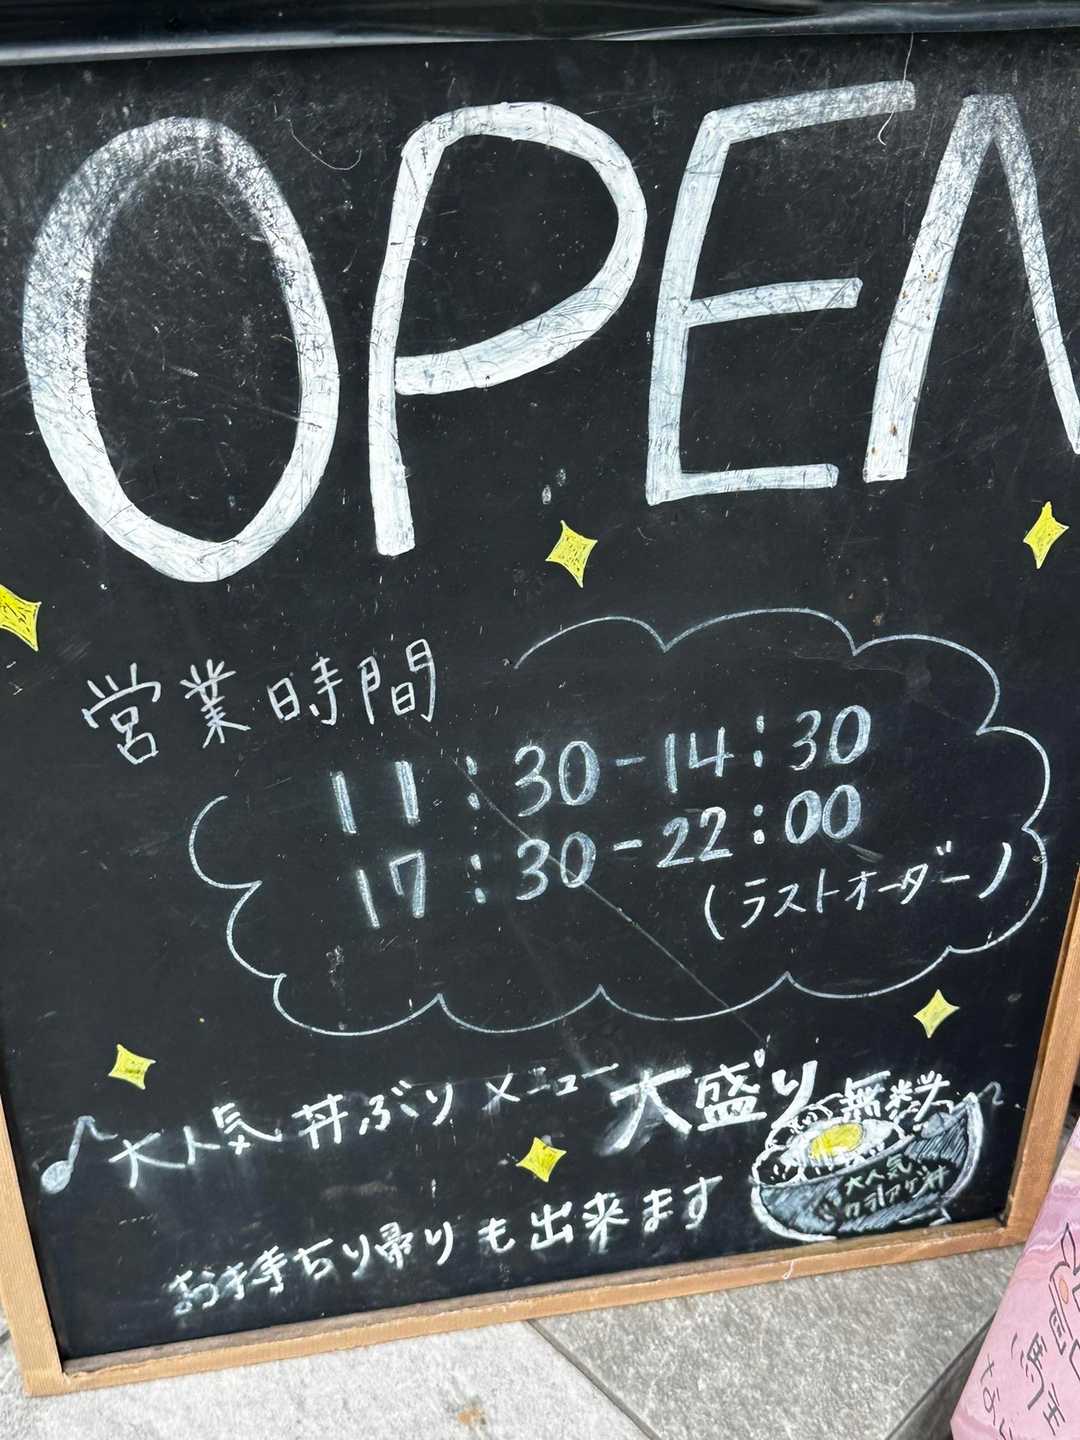 OPEN
営業時間
11:30-14:30
17:30-22:00
(ラストオーダー)
大人気 丼ぶり メニュー 大盛り無料
大人気
カラアゲ丼
お持ち帰りも出来ます